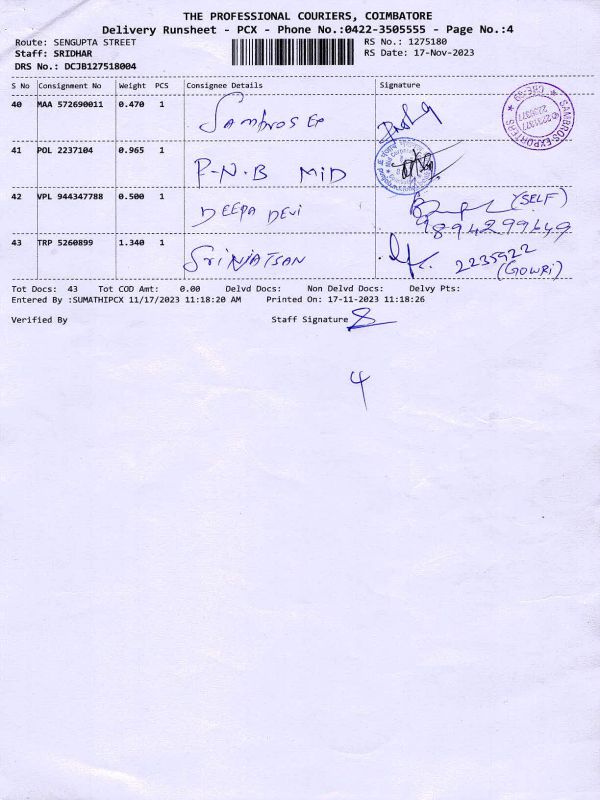 THE PROFESSIONAL COURIERS, COIMBATORE
Delivery Runsheet - PCX - Phone No.:0422-3505555 - Page No.:4
Route: SENGUPTA STREET RS No.: 1275180
Staff: SRIDHAR RS Date: 17-Nov-2023
DRS No.: DCJB127518004
S No Consignment No Weight PCS Consignee Details Signature
40 MAA 572690011 0.470 1 SAMBROS EX
SAMBROS EXPORTERS ★ CBE-29 ★
41 POL 2237104 0.965 1 P.N.B MID
42 VPL 944347788 0.500 1 DEEPA DEVI (SELF)
9894299649
43 TRP 5260899 1.340 1 2235922
(GOWRI)
Tot Docs: 43 Tot COD Amt: 0.00 Delvd Docs: Non Delvd Docs: Delvy Pts:
Entered By :SUMATHIPCX 11/17/2023 11:18:20 AM Printed On: 17-11-2023 11:18:26
Verified By Staff Signature
4